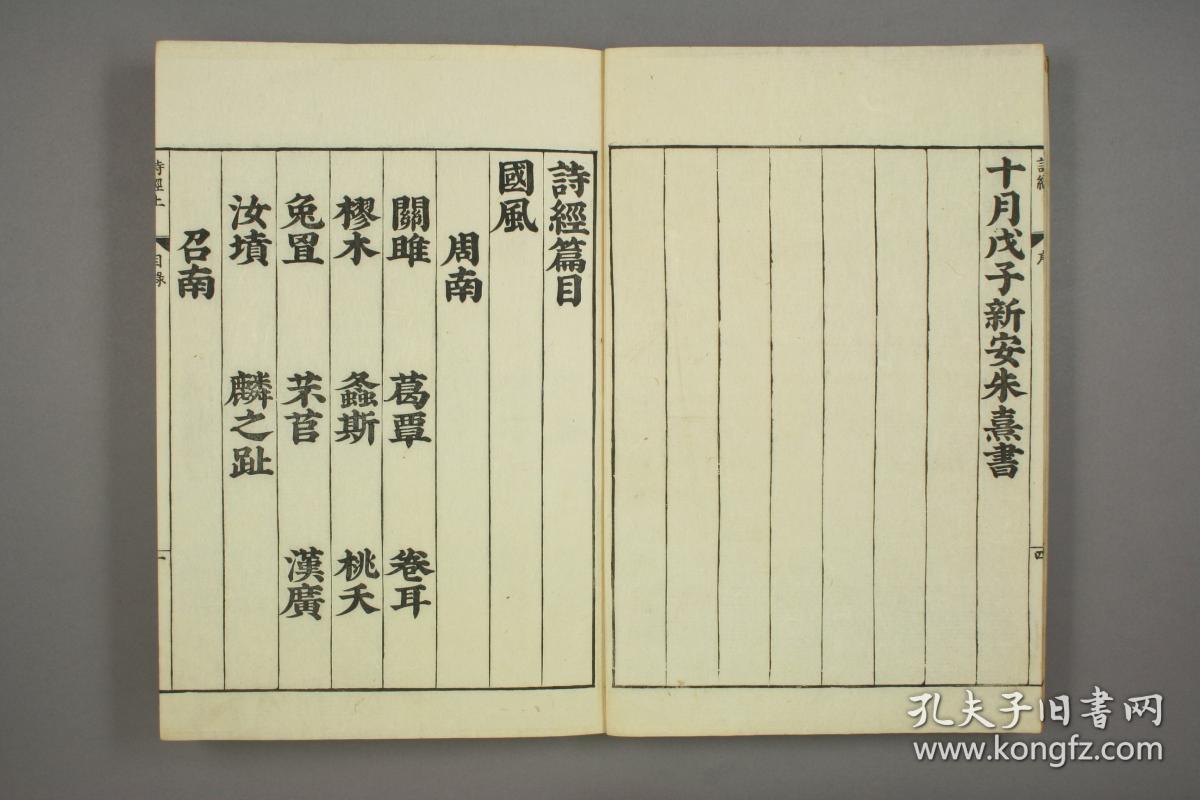 十月戊子新安朱熹書
四
詩經篇目
國風
周南
關雎 葛覃 卷耳
樛木 螽斯 桃夭
兔罝 芣苢 漢廣
汝墳 麟之趾
召南
詩經上 目錄 一
孔夫子旧書网
www.kongfz.com